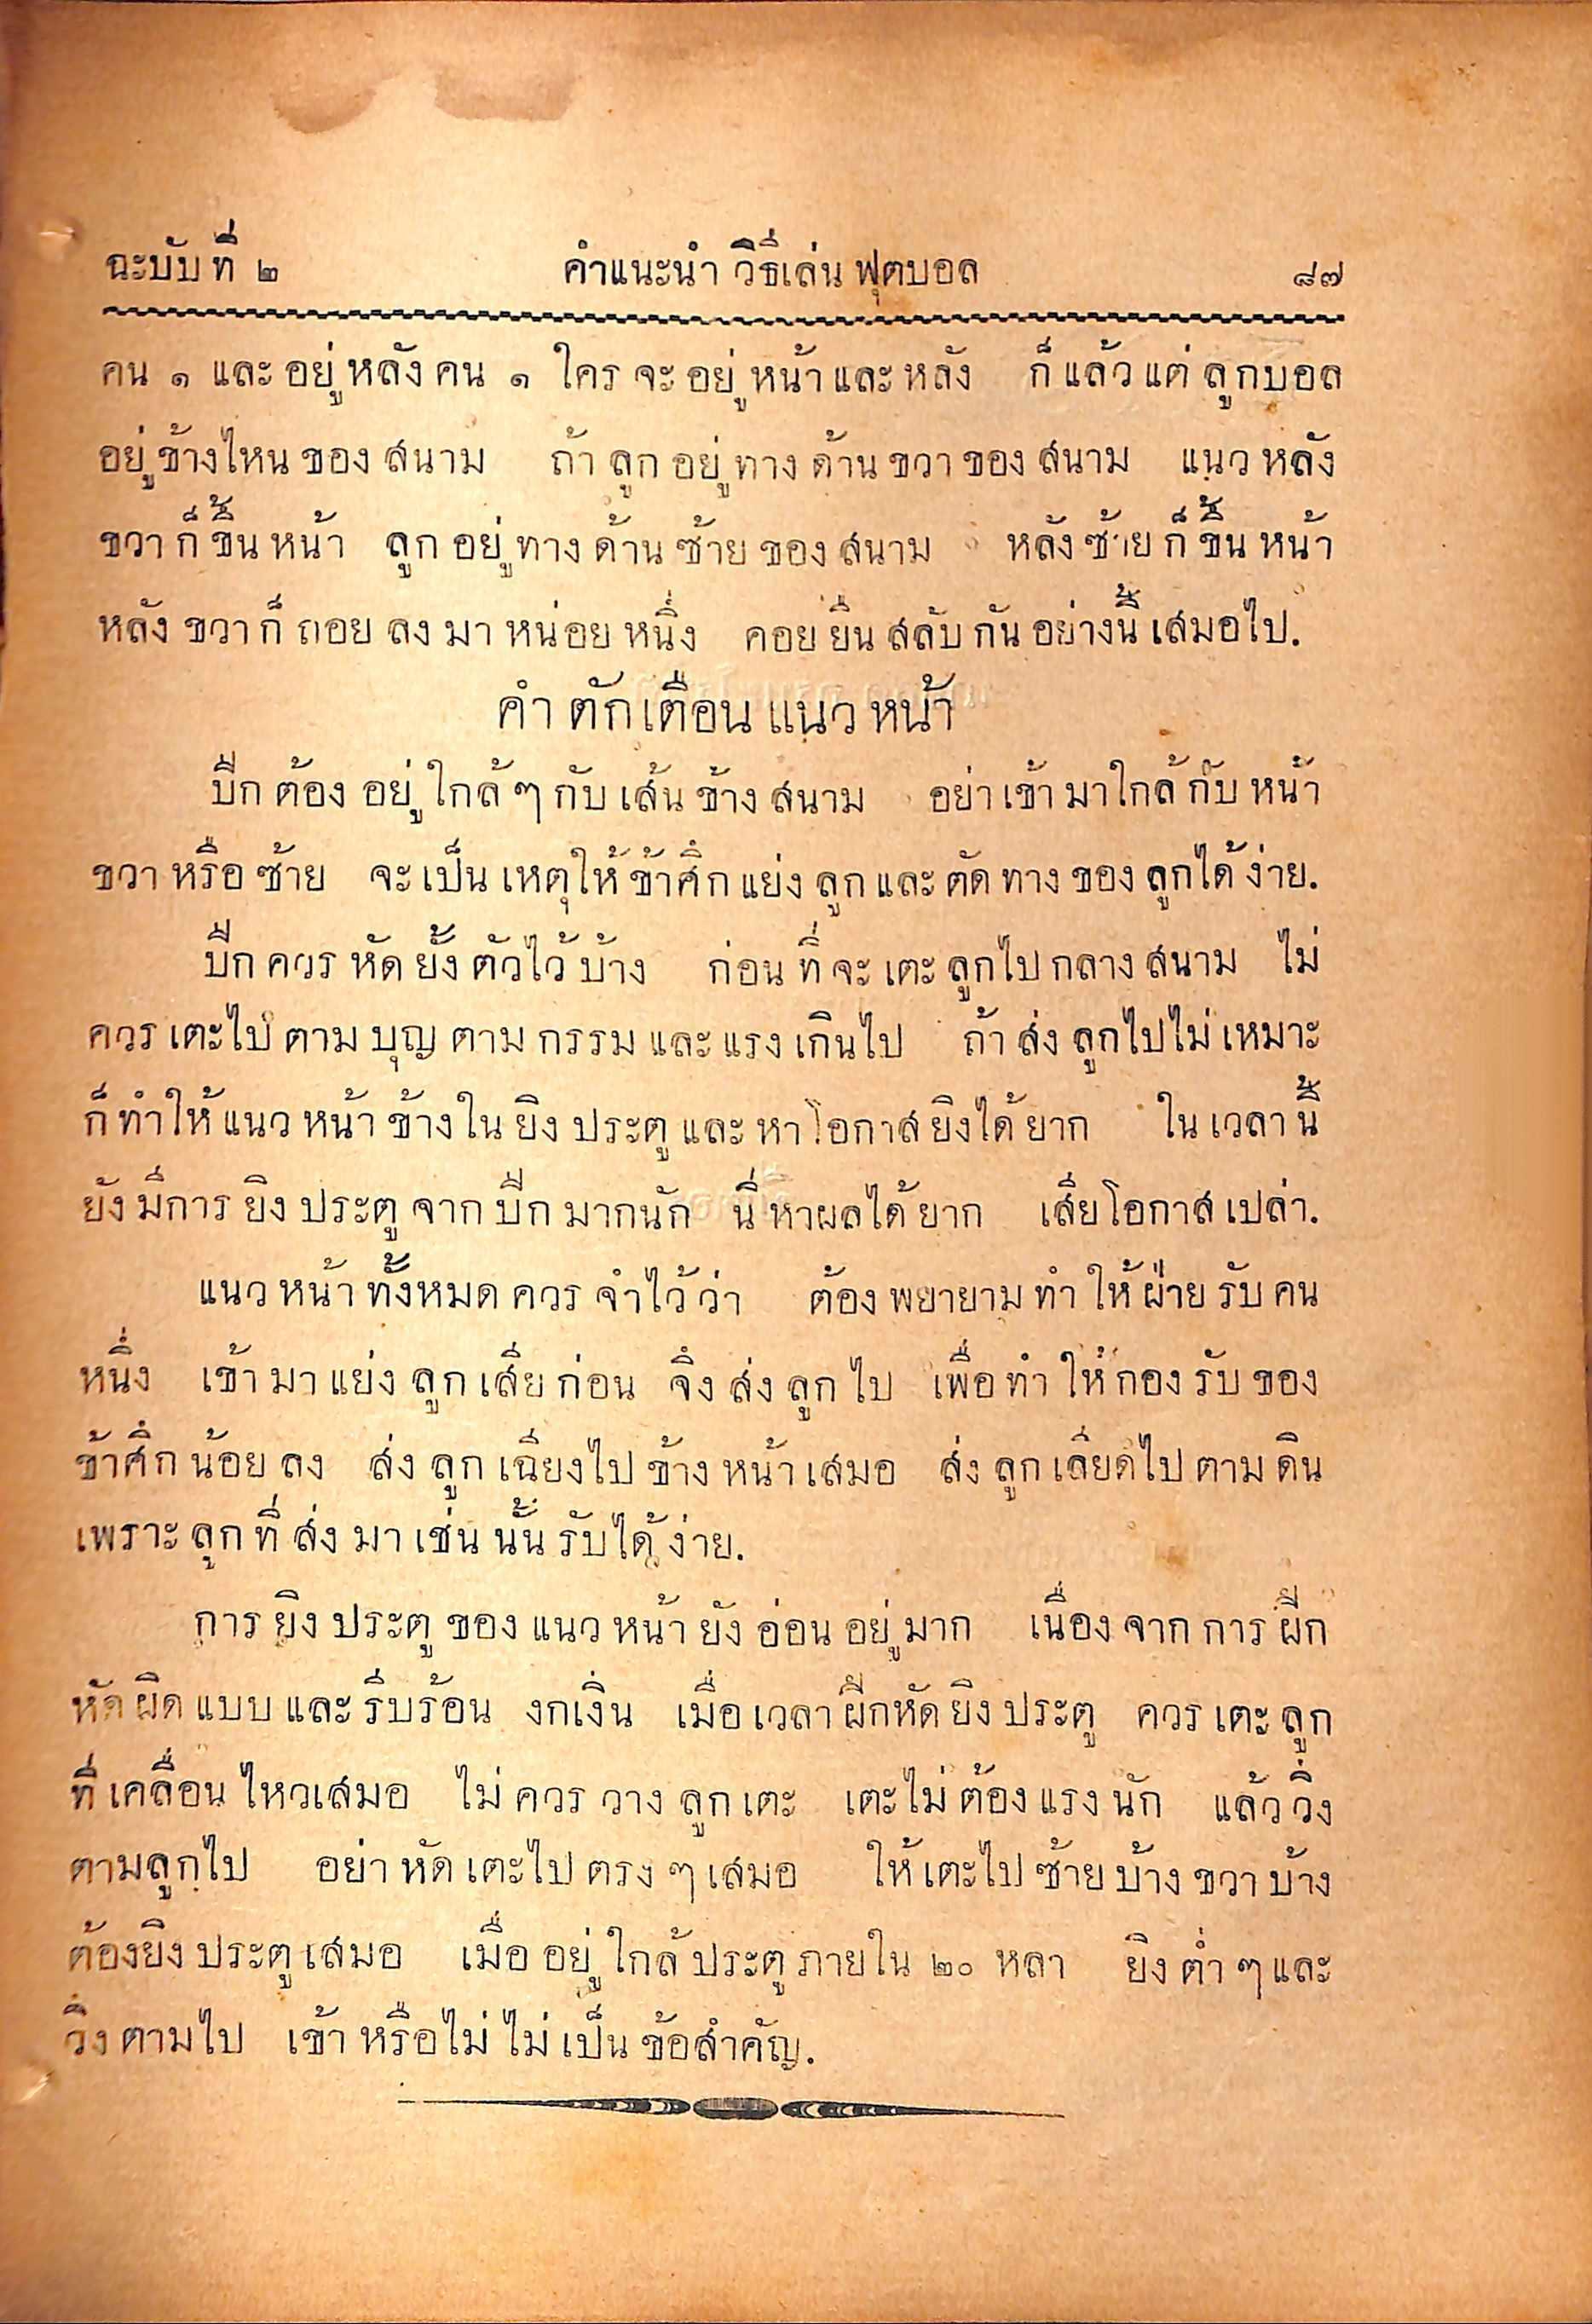 ฉะบับที่ ๒ คำแนะนำ วิธีเล่น ฟุตบอล ๘๗
คน ๑ และ อยู่ หลัง คน ๑ ใคร จะ อยู่ หน้า และ หลัง ก็ แล้ว แต่ ลูกบอล
อยู่ ข้างไหน ของ สนาม ถ้า ลูก อยู่ ทาง ด้าน ขวา ของ สนาม แนว หลัง
ขวา ก็ ขึ้น หน้า ลูก อยู่ ทาง ด้าน ซ้าย ของ สนาม หลัง ซ้าย ก็ ขึ้น หน้า
หลัง ขวา ก็ ถอย ลง มา หน่อย หนึ่ง คอย ยืน สลับ กัน อย่างนี้ เสมอไป.
คำ ตักเตือน แนว หน้า
ปีก ต้อง อยู่ ใกล้ ๆ กับ เส้น ข้าง สนาม อย่า เข้า มาใกล้ กับ หน้า
ขวา หรือ ซ้าย จะ เป็น เหตุให้ ข้าศึก แย่ง ลูก และ ตัด ทาง ของ ลูกได้ ง่าย.
ปีก ควร หัด ยั้ง ตัวไว้ บ้าง ก่อน ที่ จะ เตะ ลูกไป กลาง สนาม ไม่
ควร เตะไป ตาม บุญ ตาม กรรม และ แรง เกินไป ถ้า ส่ง ลูกไปไม่ เหมาะ
ก็ ทำให้ แนว หน้า ข้างใน ยิง ประตู และ หาโอกาส ยิงได้ ยาก ใน เวลา นี้
ยัง มีการ ยิง ประตู จาก ปีก มากนัก นี่ หาผลได้ ยาก เสียโอกาส เปล่า.
แนว หน้า ทั้งหมด ควร จำไว้ ว่า ต้อง พยายาม ทำ ให้ ฝ่าย รับ คน
หนึ่ง เข้า มา แย่ง ลูก เสีย ก่อน จึง ส่ง ลูก ไป เพื่อ ทำ ให้ กอง รับ ของ
ข้าศึก น้อย ลง ส่ง ลูก เฉียงไป ข้าง หน้า เสมอ ส่ง ลูก เลียดไป ตาม ดิน
เพราะ ลูก ที่ ส่ง มา เช่น นั้น รับได้ ง่าย.
การ ยิง ประตู ของ แนว หน้า ยัง อ่อน อยู่ มาก เนื่อง จาก การ ฝึก
หัด ผิด แบบ และ รีบร้อน งกเงิ่น เมื่อ เวลา ฝึกหัด ยิง ประตู ควร เตะ ลูก
ที่ เคลื่อน ไหวเสมอ ไม่ ควร วาง ลูก เตะ เตะไม่ ต้อง แรง นัก แล้ว วิ่ง
ตามลูกไป อย่า หัด เตะไป ตรง ๆ เสมอ ให้ เตะไป ซ้าย บ้าง ขวา บ้าง
ต้องยิง ประตู เสมอ เมื่อ อยู่ ใกล้ ประตู ภายใน ๒๐ หลา ยิง ต่ำ ๆ และ
วิ่ง ตามไป เข้า หรือไม่ ไม่ เป็น ข้อสำคัญ.